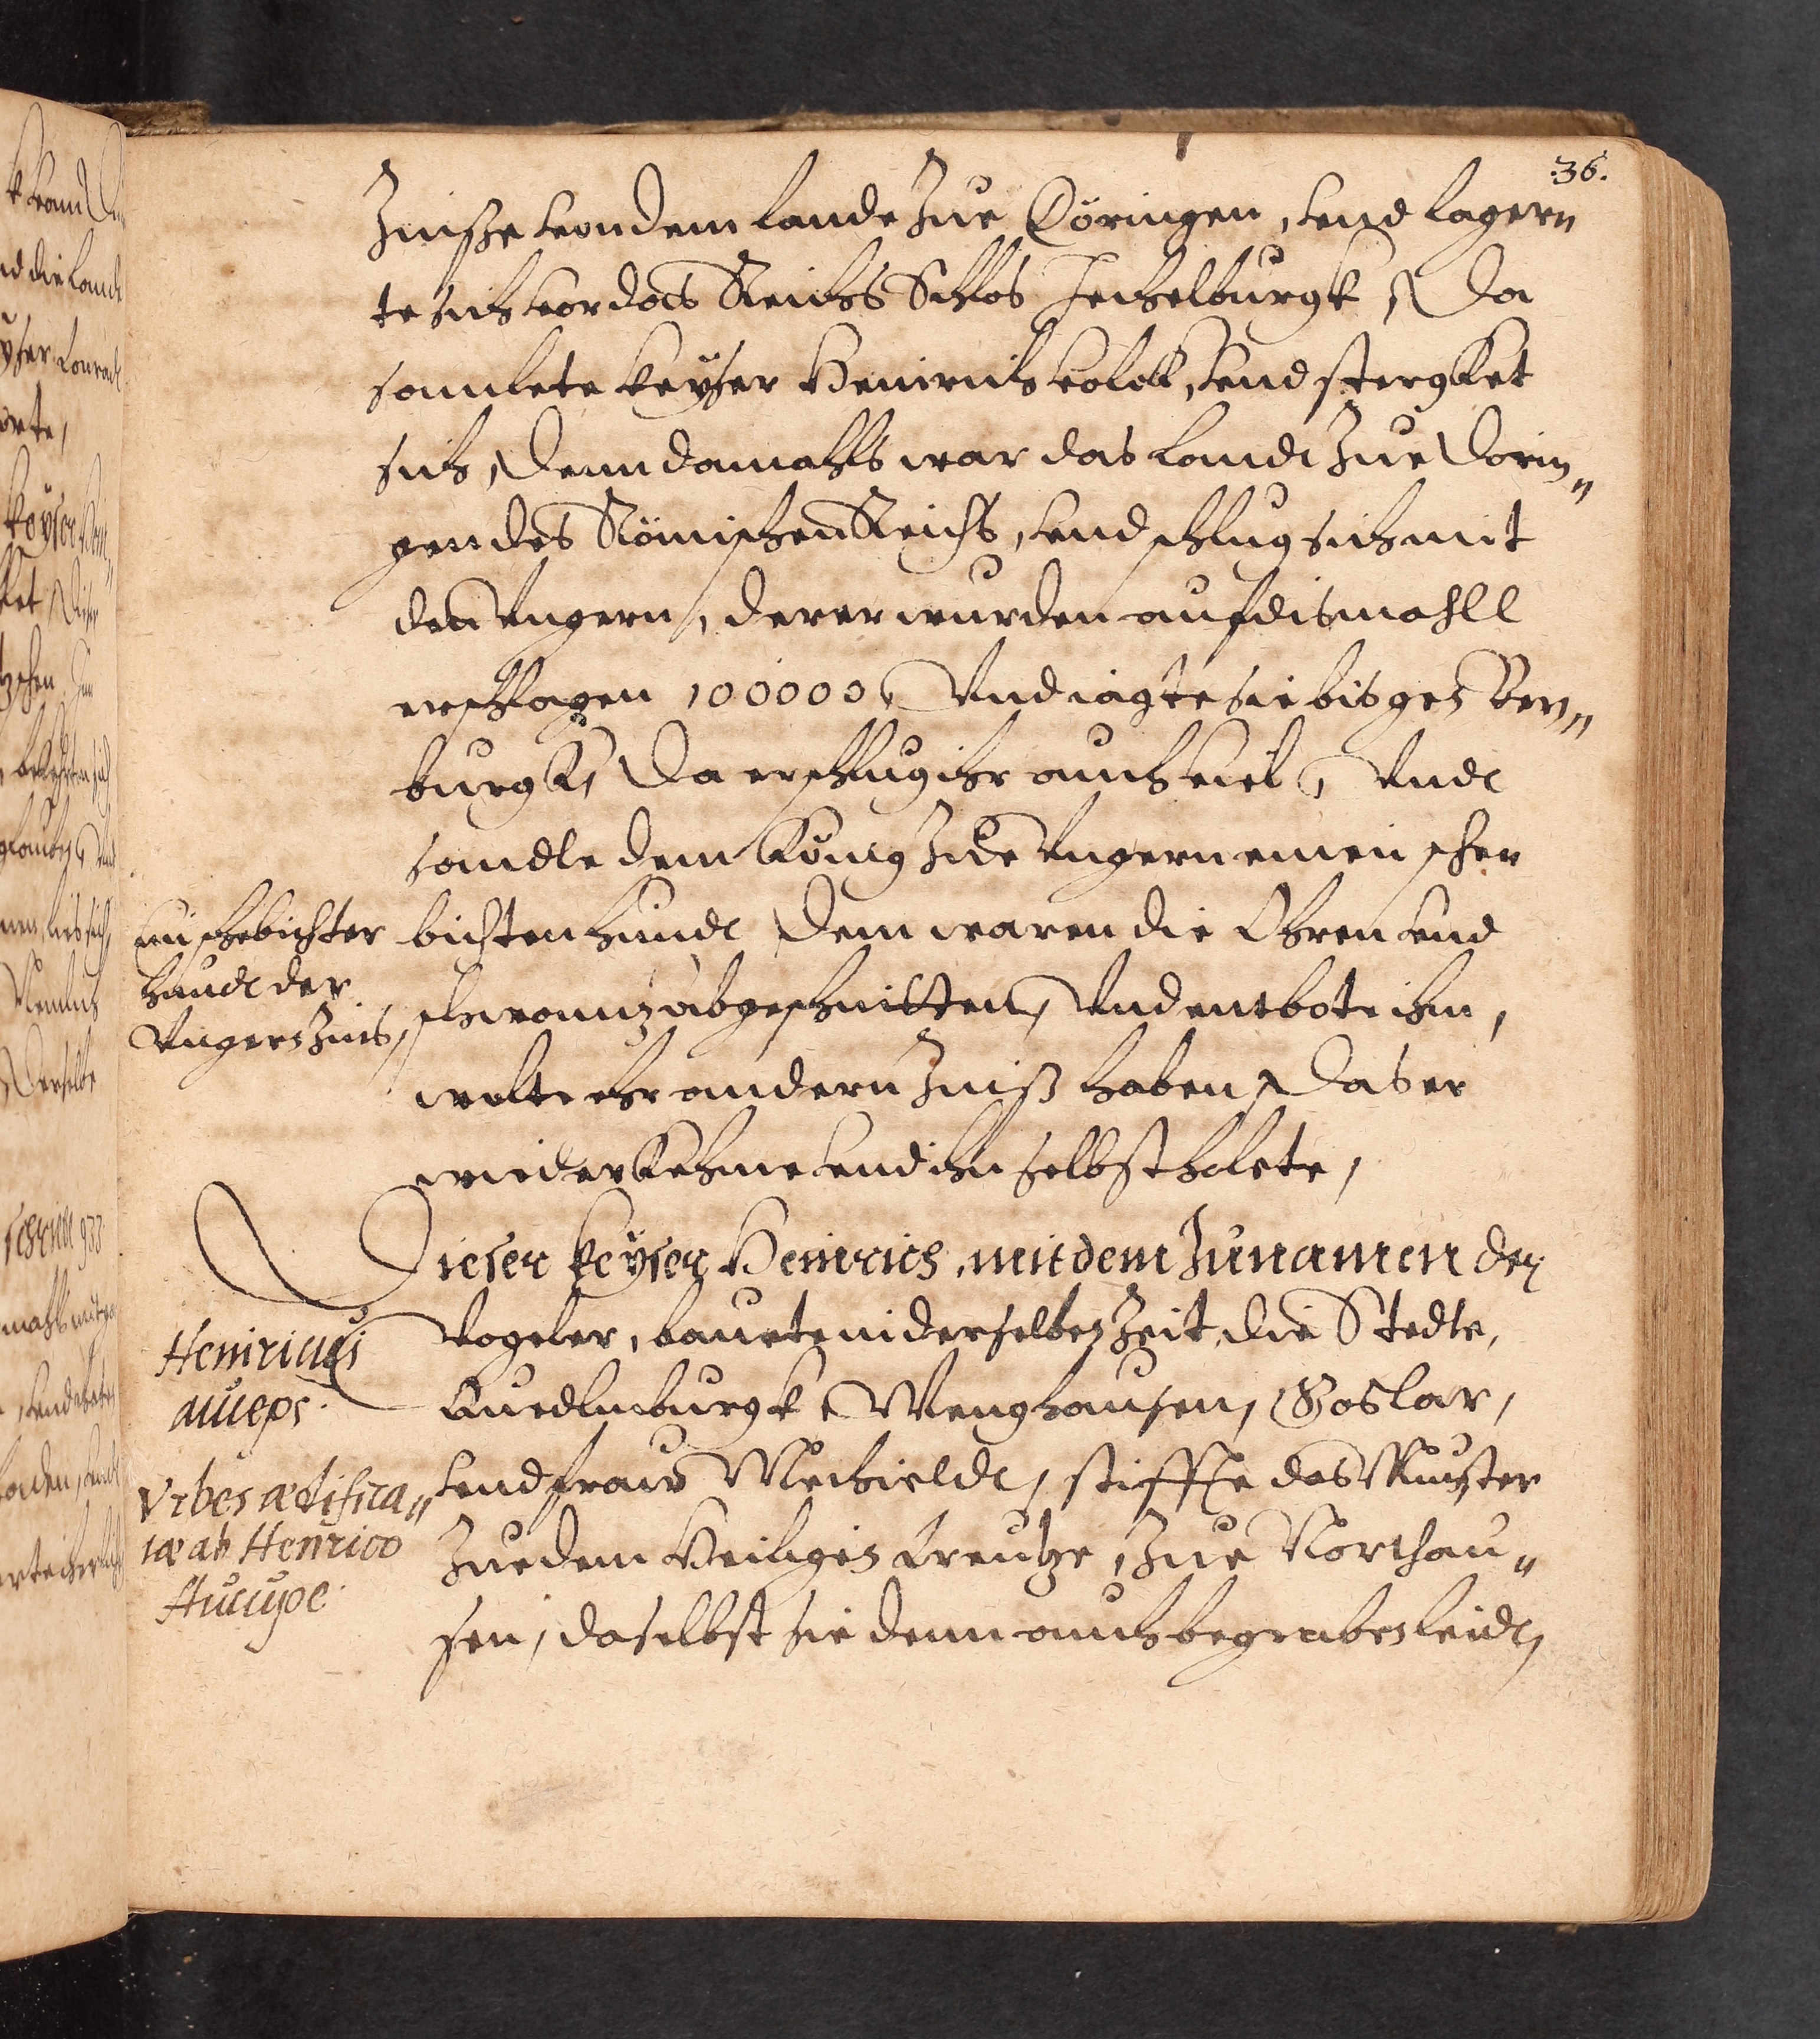 36.
Zinsse von dem lande zue Döringen, vnd lagern
te sich vor das Reichs Schlos Jechelburgk, Da
samlete keyser Heinrich volck, vnd stergket
sich, denn damahls war das Landt zue Dorin„
gen des Römischen Reichs, vnd schlug sich mit
den Vngern, derer wurden auf dismahll
erschlagen 100000, Vnd iagte sie bis gen Ber„
burgk, Da erschlug ihr auch viel, Vndt
sandte dem König zue Vngern einen scher
bichten hundt dem waren die Ohren vnd
schwantz abgeschnitten, Vnd entbote ihm,
wolte ehr andern Zinß haben, Das er
wiederkehme vnd ihn selbst holete,
Dieser keyser Heinrich, mit dem Zunamen der
Vogeler, bauete in derselben Zeit, die Stedte,
Quedlinburgk, Menghausen, Goslar,
vnd fraw Mechieldt, stiffte das Münster
Zue dem Heiligen Creutze, zue Northau„
sen, daselbst sie denn auch begraben leidt,
ein schebichter
hundt der
Vngern Zins,
Heinricus
auceps.
Vrbes ædifica„
tæ ab Henrico
Aucupe.